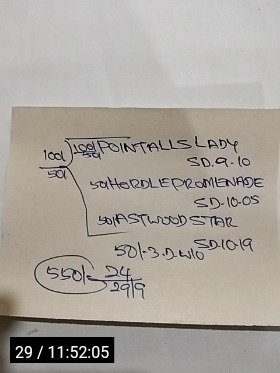 100/ 100/ POINTALLS LADY
50/ 50/ SD.9-10
50/ HORDLE PROMENADE
SD-10-05
50/ ASTWOOD STAR
SD-10-19
50/-3.D.W/O
550/- 24
29/9
29 / 11:52:05